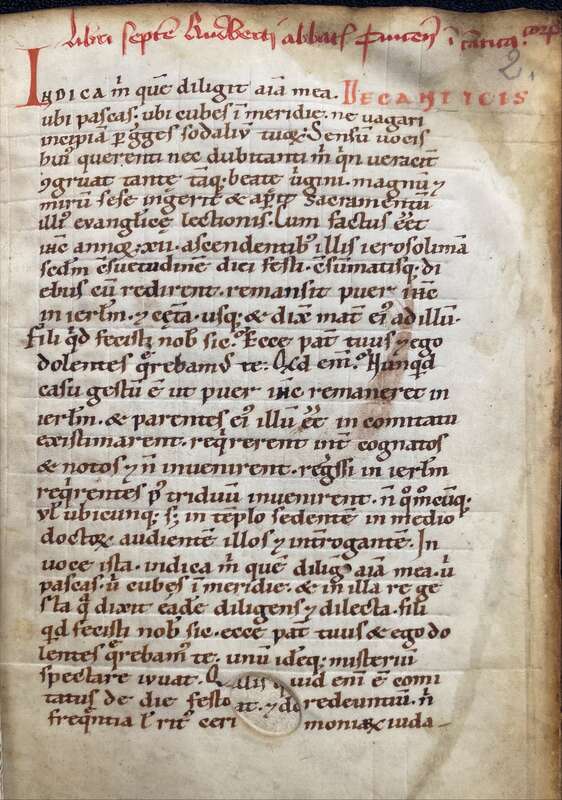 Libri septē Rudberti abbatꝭ Tuicēn̄ ī cantica.
2
INDICA m̄ quē diligit aīa mea. DE CANTICIS
ubi pascas; ubi cubes ī meridie. ne vagari
incipiā p̄ g̾ges sodaliū tuoꝝ. Sensū vocis
hui᷒ querenti nec dubitanti m̄ qn̄ veracit̄
ꝯgruat tante tāq; beate v̾gini. magnū ⁊
mirū sese ing̾erit & ap̄it sacramentū
illi᷒ evanglicę lectionis. Cum factus eēt
ih̅c annoꝝ .xii. ascendentib᷒ illis ierosolimā
scdm̄ ꝯsuetudinē diei festi. ꝯsūmatisq; di
ebus cū redirent. remansit puer ih̅c
in ierłm. ⁊ cęta. usq; & dix̄ mat̄ ei᷒ ad illū.
Fili qͥd fecisti nob̄ sic. Ecce pat̄ tuus ⁊ ego
dolentes q̄rebam᷒ te. Qͥd enī. Nunqͥd
casu gestū ē ut puer ih̅c remaneret in
ierłm. & parentes ei᷒ illū eēt in comitatu
existimarent. req̄rerent int̄ cognatos
& notos ⁊ n̄ invenirent. reg̾ssi in ierłm
req̄rentes p᷒ triduū invenirent. n̄ qͦmōcūq;
vł ubicunq; s; in tēplo sedentē in medio
doctoꝝ. audientē illos ⁊ int̾rogantē. In
voce ista. indica m̄ quē dilig̾ aīa mea. u̇
pascas. u̇ cubes ī meridie. & in illa re ge
sta qͣ dixit eadē diligens ⁊ dilecta. fili
qͥd fecisti nob̄ sic. ecce pat̄ tuus & ego do
lentes q̄rebam᷒ te. unū idēq; misteriū
spectare iuvat. Qualis q̇ uid enī ē comi
tatus de die festo at. ⁊ de redeuntiū. n̄
freq̄ntia ł rit᷒ ceri moniaꝝ iuda-